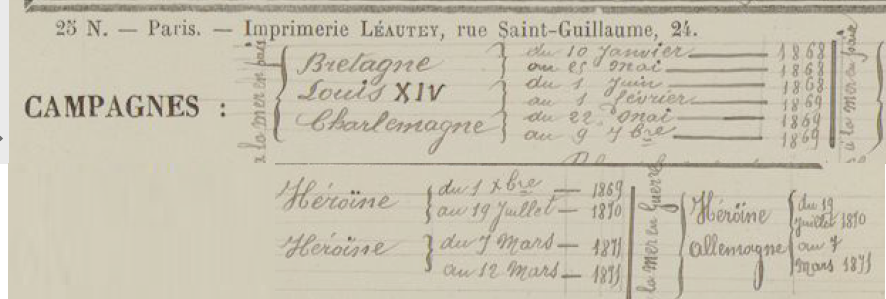 25 N. — Paris. — Imprimerie LÉAUTEY, rue Saint-Guillaume, 24.
CAMPAGNES :
à la mer en paix
Bretagne { du 10 Janvier — 1868
au 25 Mai — 1868
Louis XIV { du 1 Juin — 1868
au 1 février — 1869
Charlemagne { du 22 Mai — 1869
au 9 7bre — 1869
à la mer en paix
Héroïne { du 1 Xbre — 1869
au 19 Juillet — 1870
Héroïne { du 7 Mars — 1871
au 12 Mars — 1871
la mer en Guerre
Héroïne
allemagne
du 19
Juillet 1870
au 7
Mars 1871